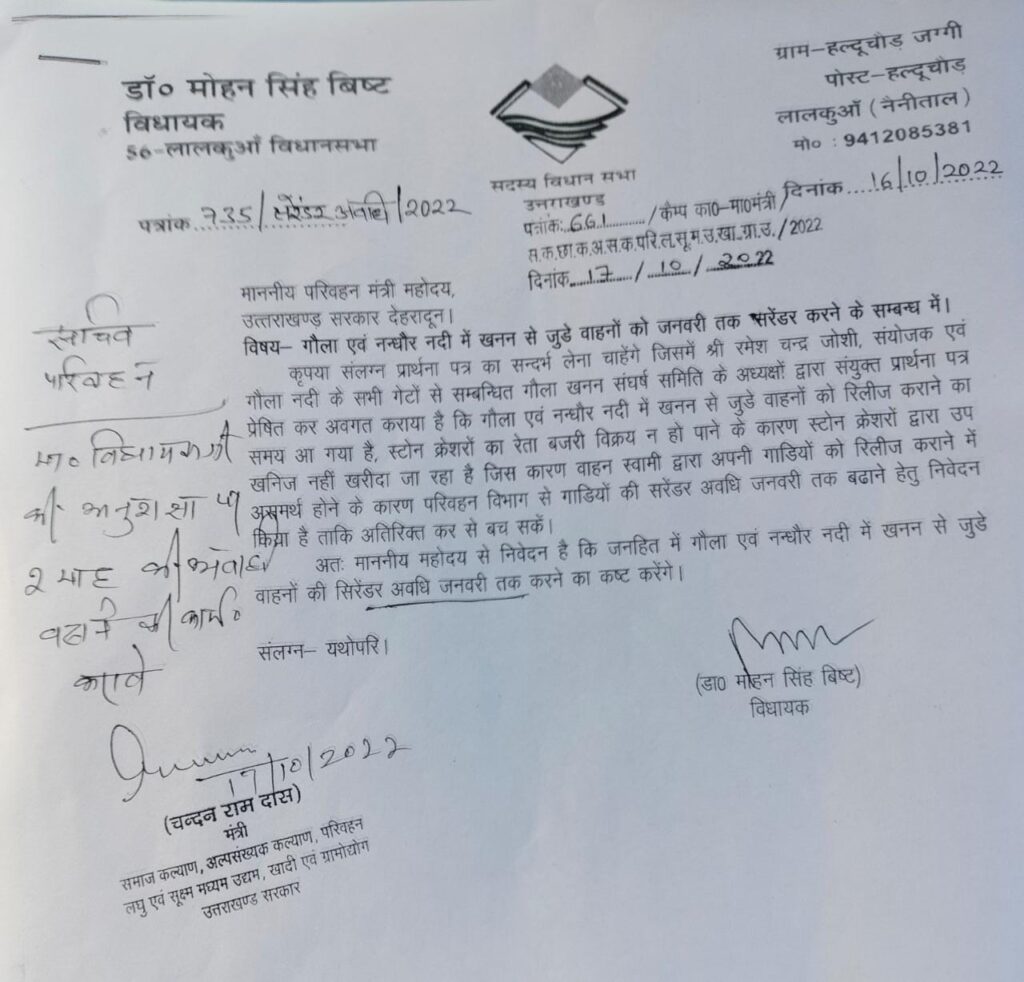 डॉ० मोहन सिंह बिष्ट
विधायक
56-लालकुआँ विधानसभा
पत्रांक 735/सरेंडर अवधि/2022
सदस्य विधान सभा
उत्तराखण्ड
ग्राम-हल्दूचौड़ जग्गी
पोस्ट-हल्दूचौड़
लालकुआँ (नैनीताल)
मो० : 9412085381
दिनांक....16/10/2022
पत्रांक: 661......./कैम्प का0-मा0मंत्री/
स.क.छा.क.अ.स.क.परि.ल.सू.म.उ.खा.ग्रा.उ./2022
दिनांक....17..../...10.../...2022
माननीय परिवहन मंत्री महोदय,
उत्तराखण्ड सरकार देहरादून।
विषय– गौला एवं नन्धौर नदी में खनन से जुडे वाहनों को जनवरी तक सरेंडर करने के सम्बन्ध में।
कृपया संलग्न प्रार्थना पत्र का सन्दर्भ लेना चाहेंगे जिसमें श्री रमेश चन्द्र जोशी, संयोजक एवं
गौला नदी के सभी गेटों से सम्बन्धित गौला खनन संघर्ष समिति के अध्यक्षों द्वारा संयुक्त प्रार्थना पत्र
प्रेषित कर अवगत कराया है कि गौला एवं नन्धौर नदी में खनन से जुडे वाहनों को रिलीज कराने का
समय आ गया है, स्टोन क्रेशरों का रेता बजरी विक्रय न हो पाने के कारण स्टोन क्रेशरों द्वारा उप
खनिज नहीं खरीदा जा रहा है जिस कारण वाहन स्वामी द्वारा अपनी गाडियों को रिलीज कराने में
असमर्थ होने के कारण परिवहन विभाग से गाडियों की सरेंडर अवधि जनवरी तक बढाने हेतु निवेदन
किया है ताकि अतिरिक्त कर से बच सकें।
अतः माननीय महोदय से निवेदन है कि जनहित में गौला एवं नन्धौर नदी में खनन से जुडे
वाहनों की सिरेंडर अवधि जनवरी तक करने का कष्ट करेंगे।
संलग्न– यथोपरि।
(डा0 मोहन सिंह बिष्ट)
विधायक
सचिव
परिवहन
मा० विधायक जी
की अनुशंसा पर
2 माह की अवधि
बढ़ाने की कार्य०
करावे
17/10/2022
(चन्दन राम दास)
मंत्री
समाज कल्याण, अल्पसंख्यक कल्याण, परिवहन
लघु एवं सूक्ष्म मध्यम उद्यम, खादी एवं ग्रामोद्योग
उत्तराखण्ड सरकार